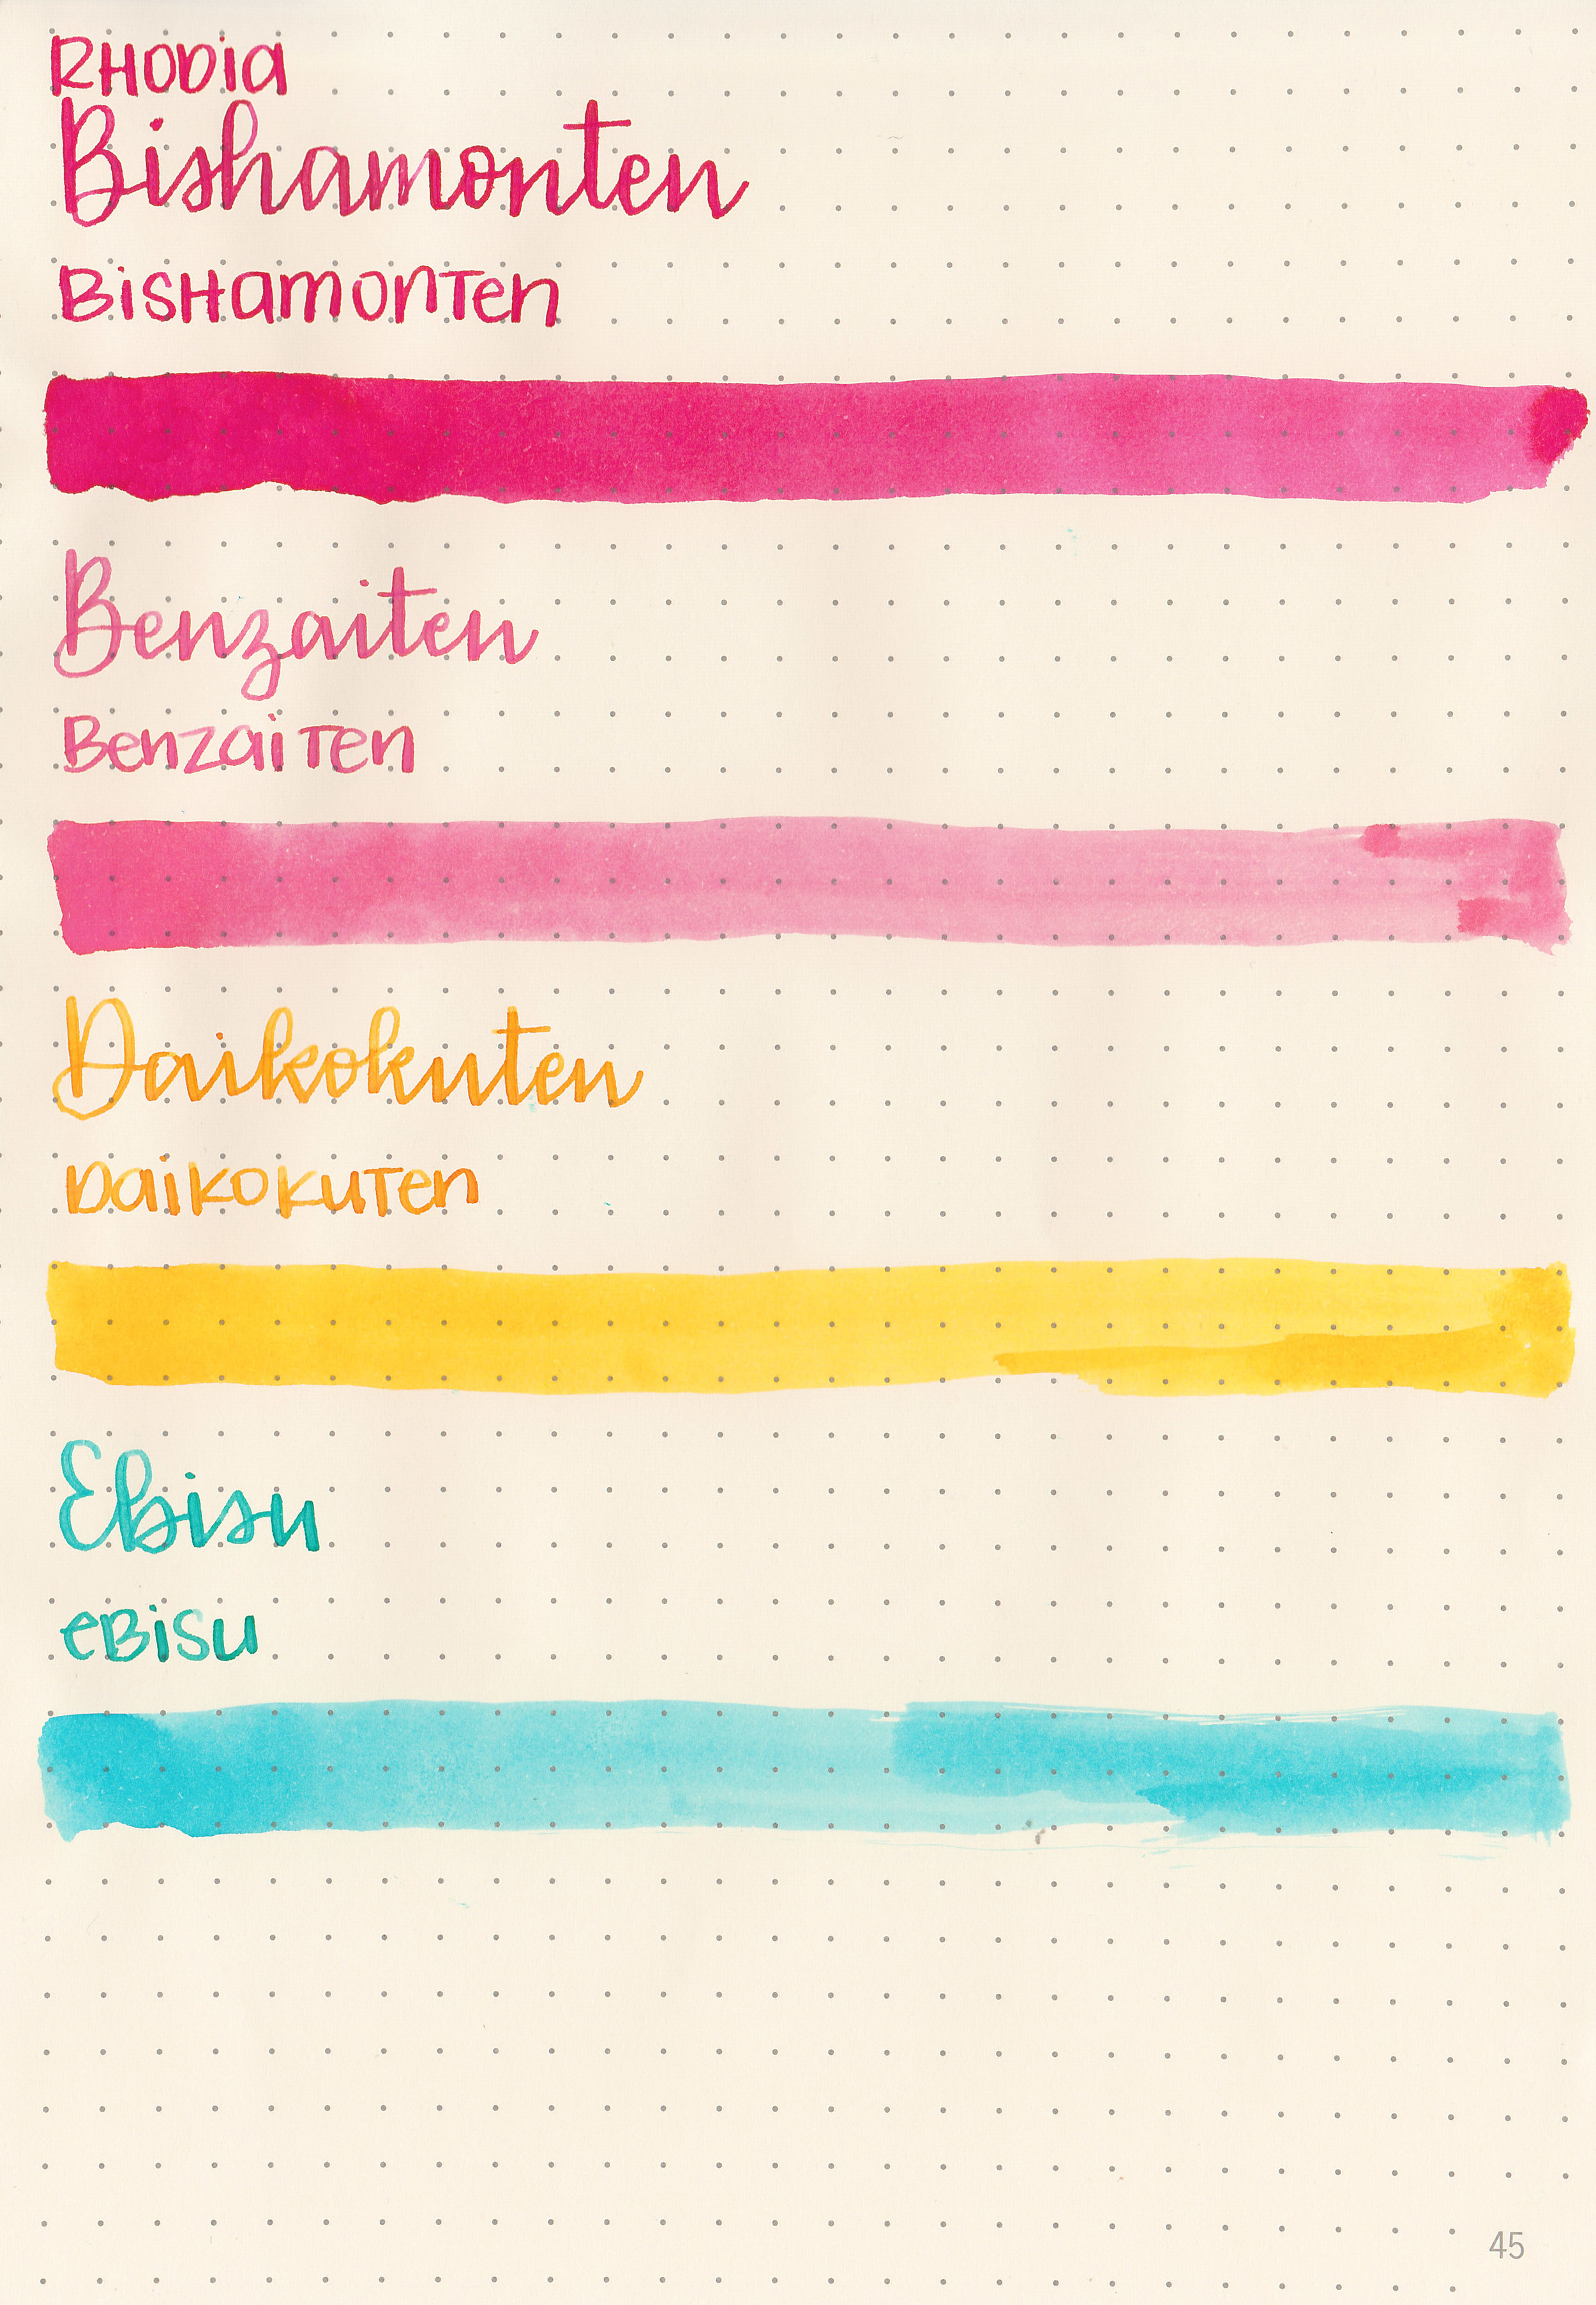 RHODIA
Bishamonten
BISHamonTen
Benzaiten
BenzaiTen
Daikokuten
DaikokuTen
Ebisu
eBisu
45